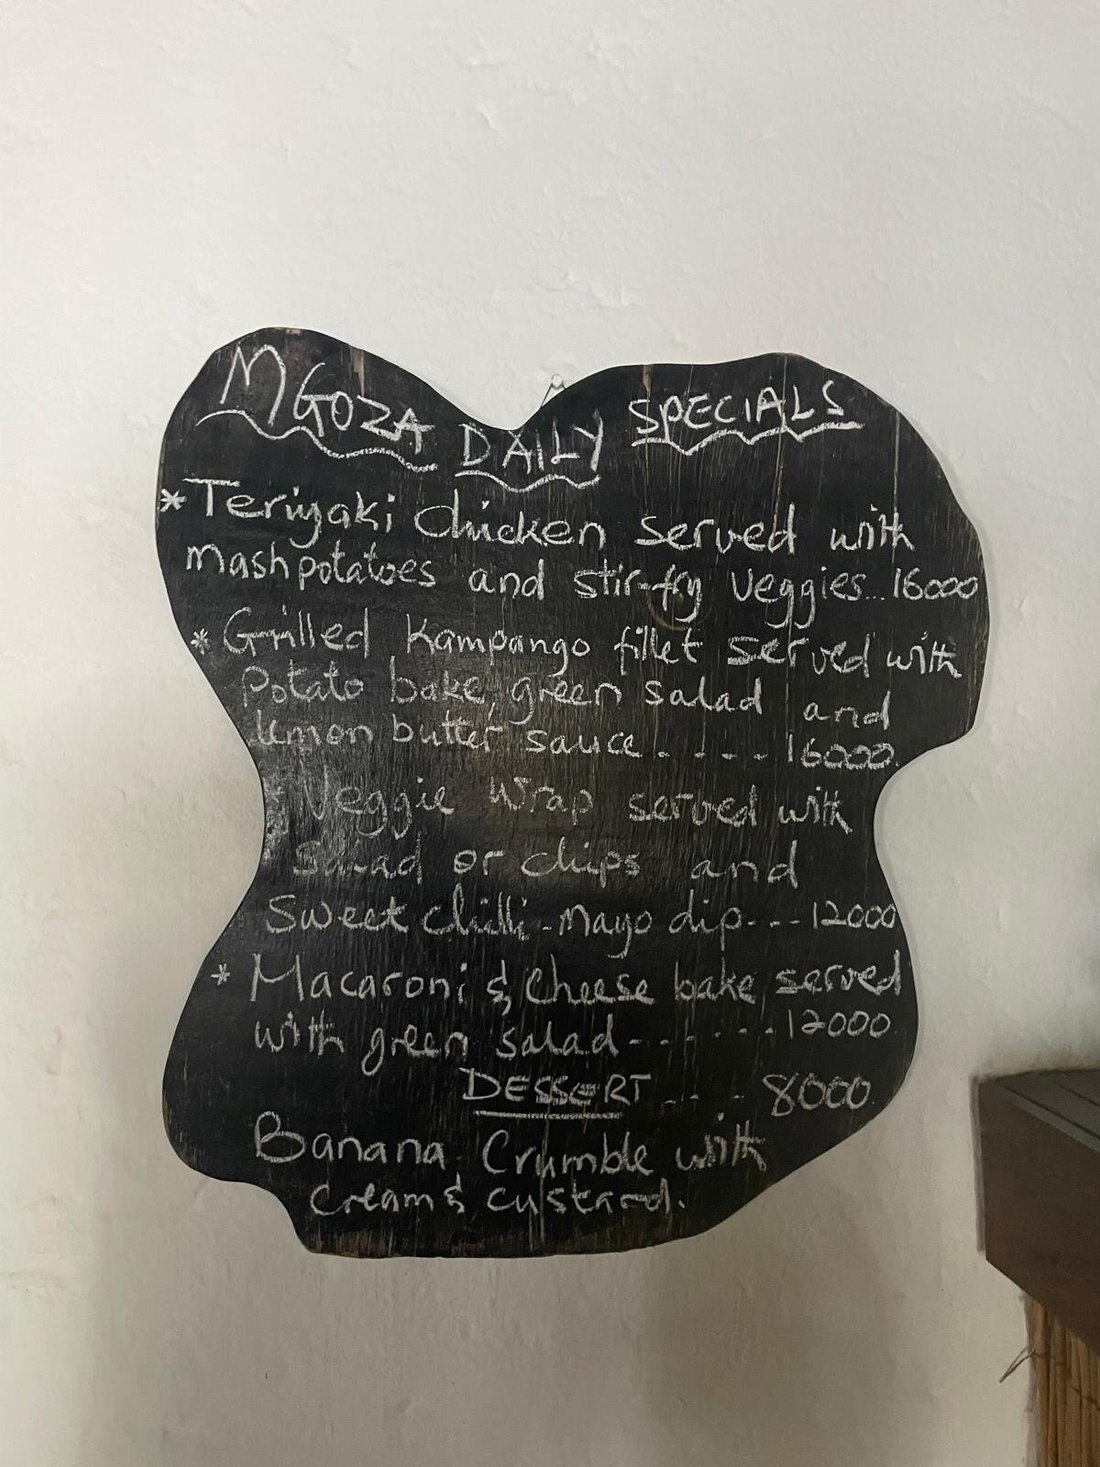 MGOZA DAILY SPECIALS
*Teriyaki Chicken served with
mashpotatoes and stir-fry veggies...16000
*Grilled Kampango fillet served with
potato bake, green salad and
lemon butter sauce.----16000.
*Veggie Wrap served with
Salad or chips and
Sweet chilli-mayo dip---12000
*Macaroni & Cheese bake served
with green salad-------12000
DESSERT---- 8000.
Banana Crumble with
cream & custard.